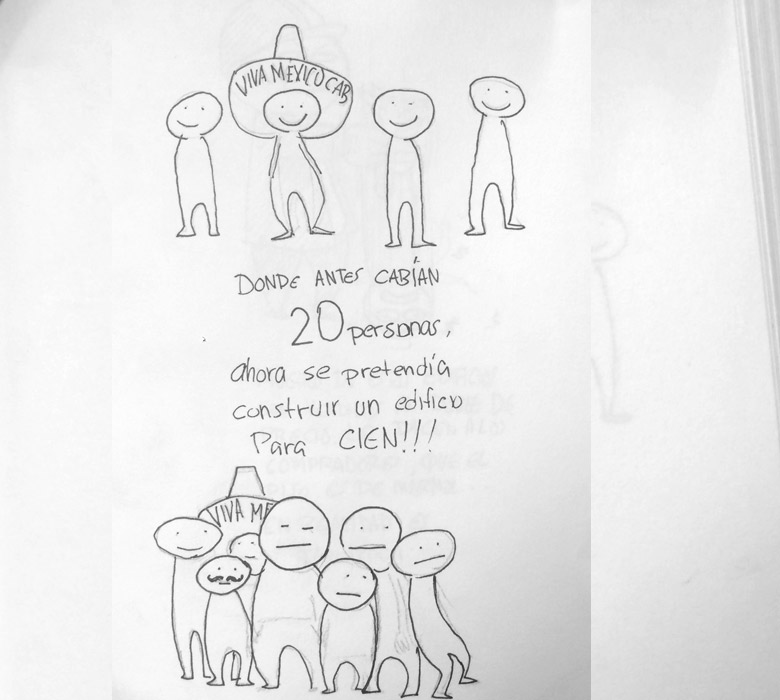 VIVA MEXICO CAB
DONDE ANTES CABÍAN
20 personas,
ahora se pretendía
construir un edifico
Para CIEN!!!
VIVA ME